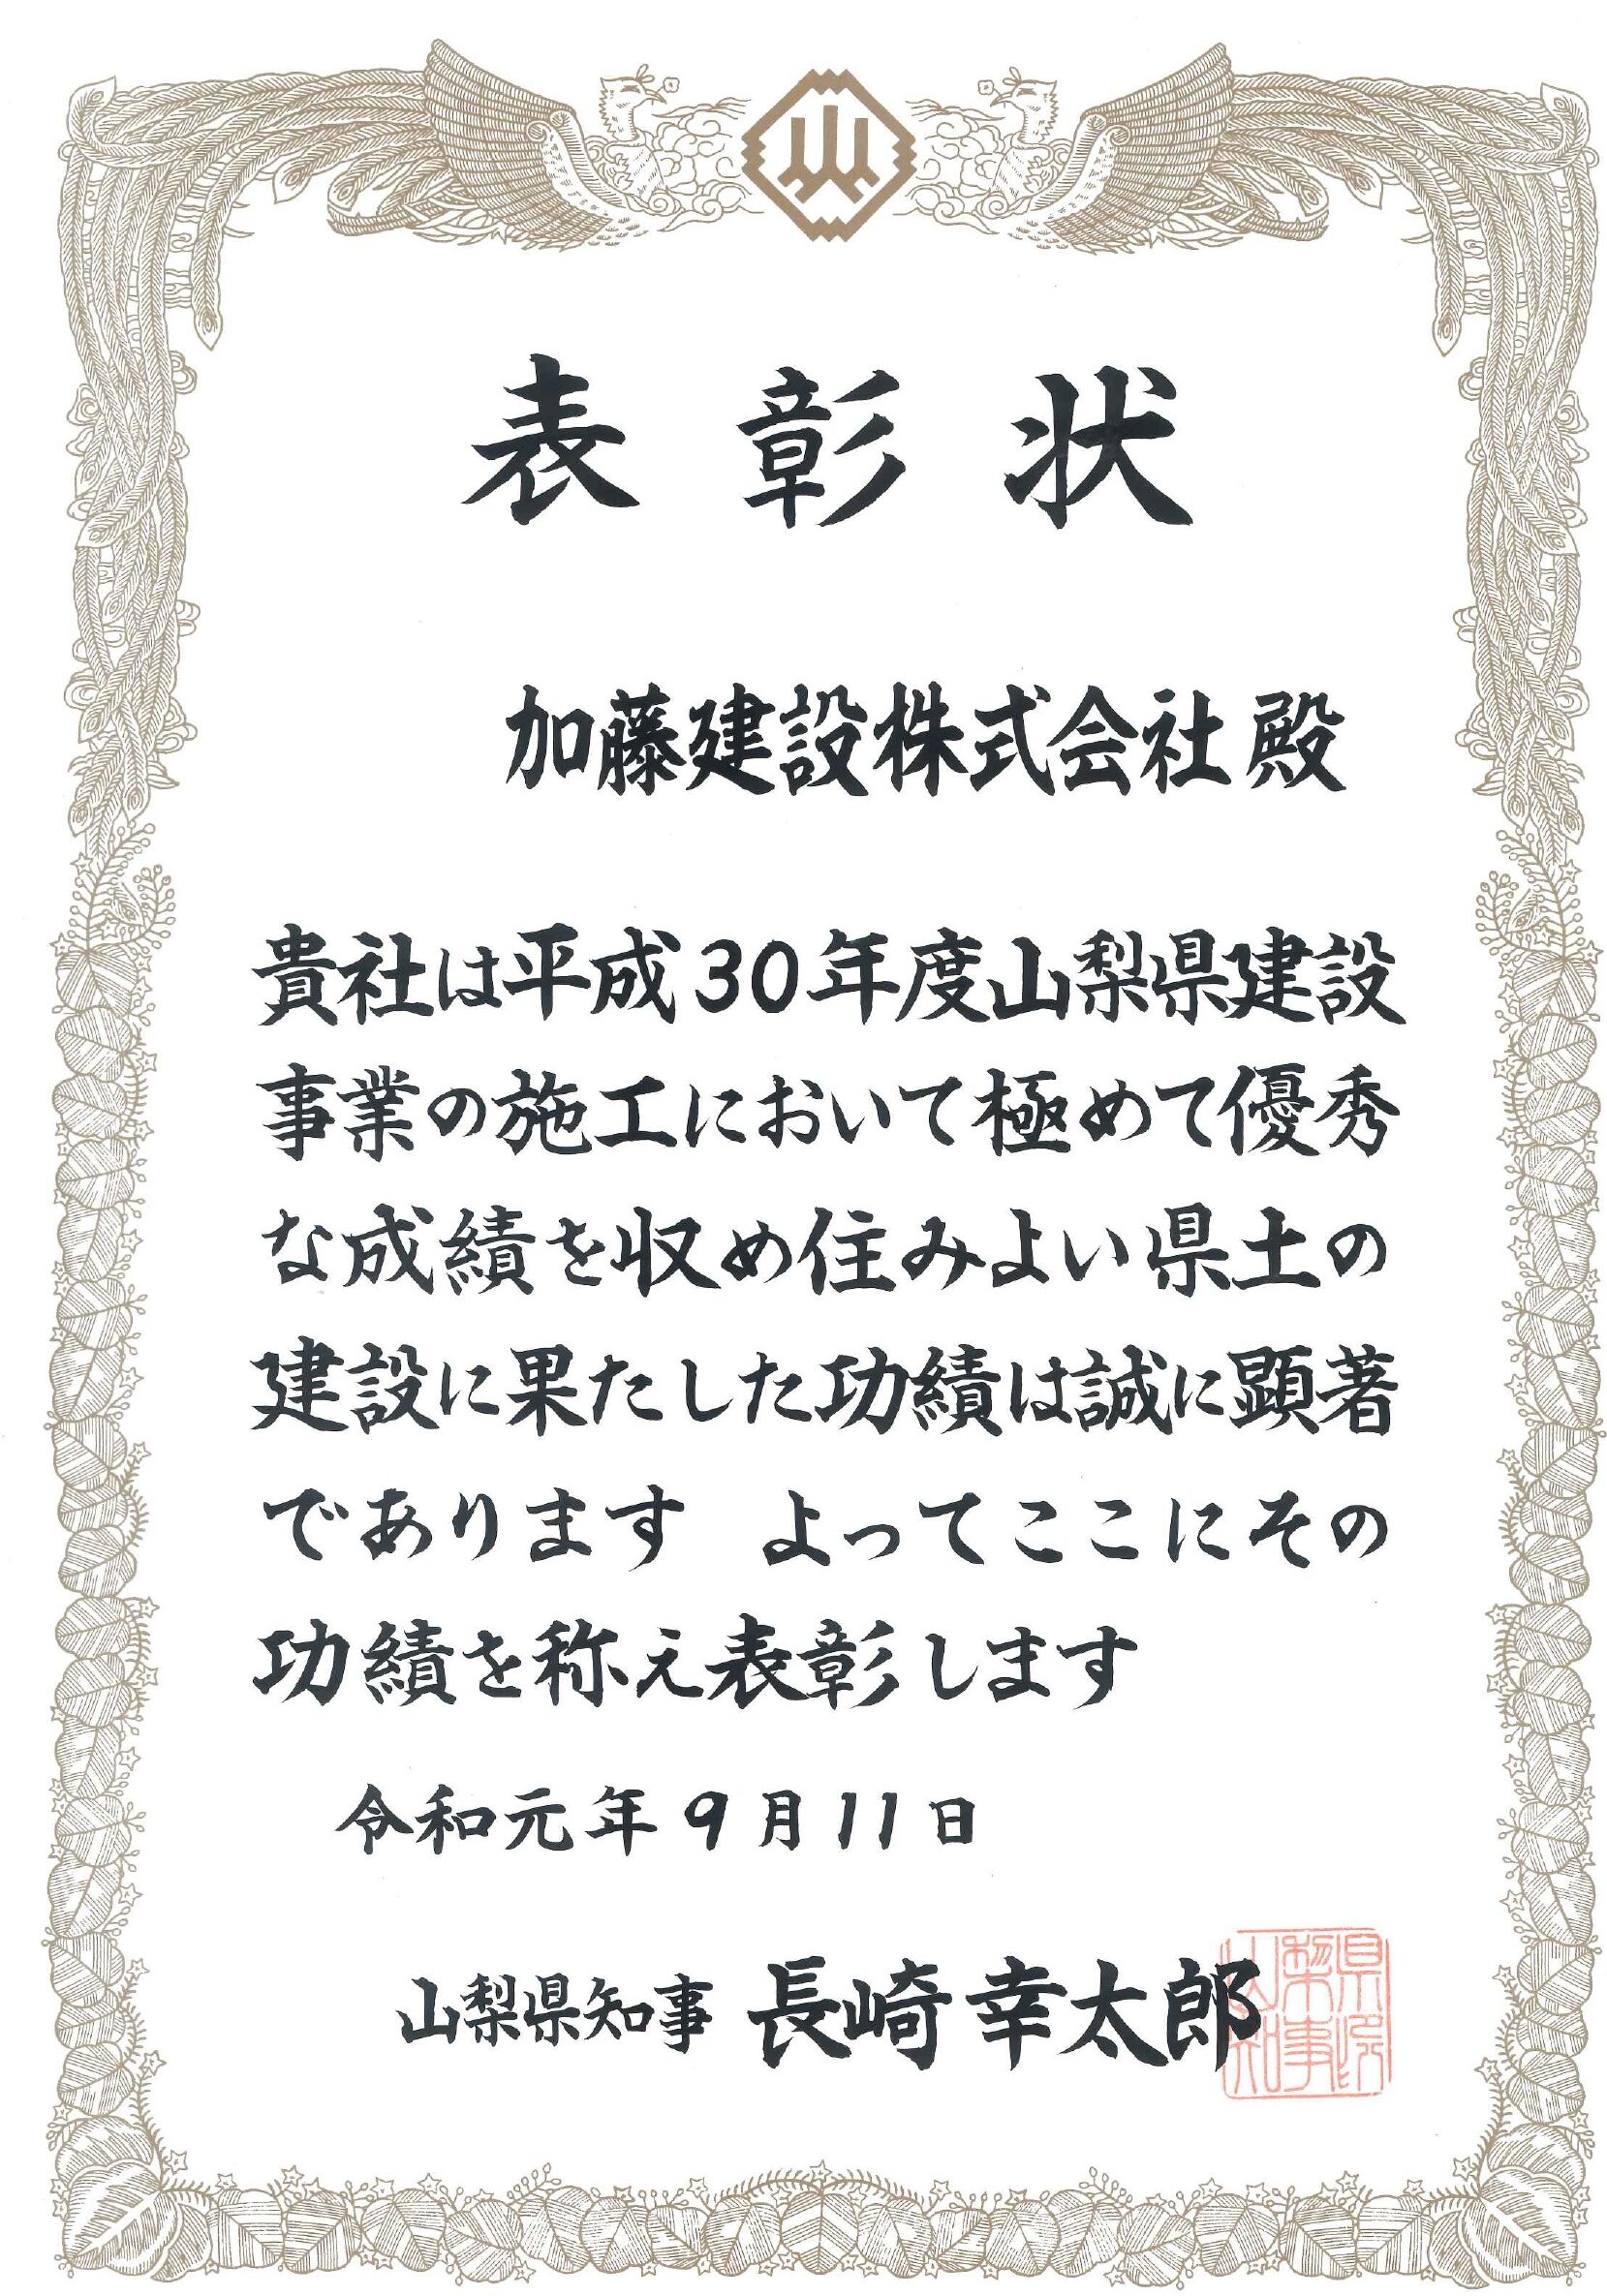 表彰状
加藤建設株式会社 殿
貴社は平成30年度山梨県建設
事業の施工において極めて優秀
な成績を収め住みよい県土の
建設に果たした功績は誠に顕著
であります　よってここにその
功績を称え表彰します
令和元年9月11日
山梨県知事 長崎幸太郎